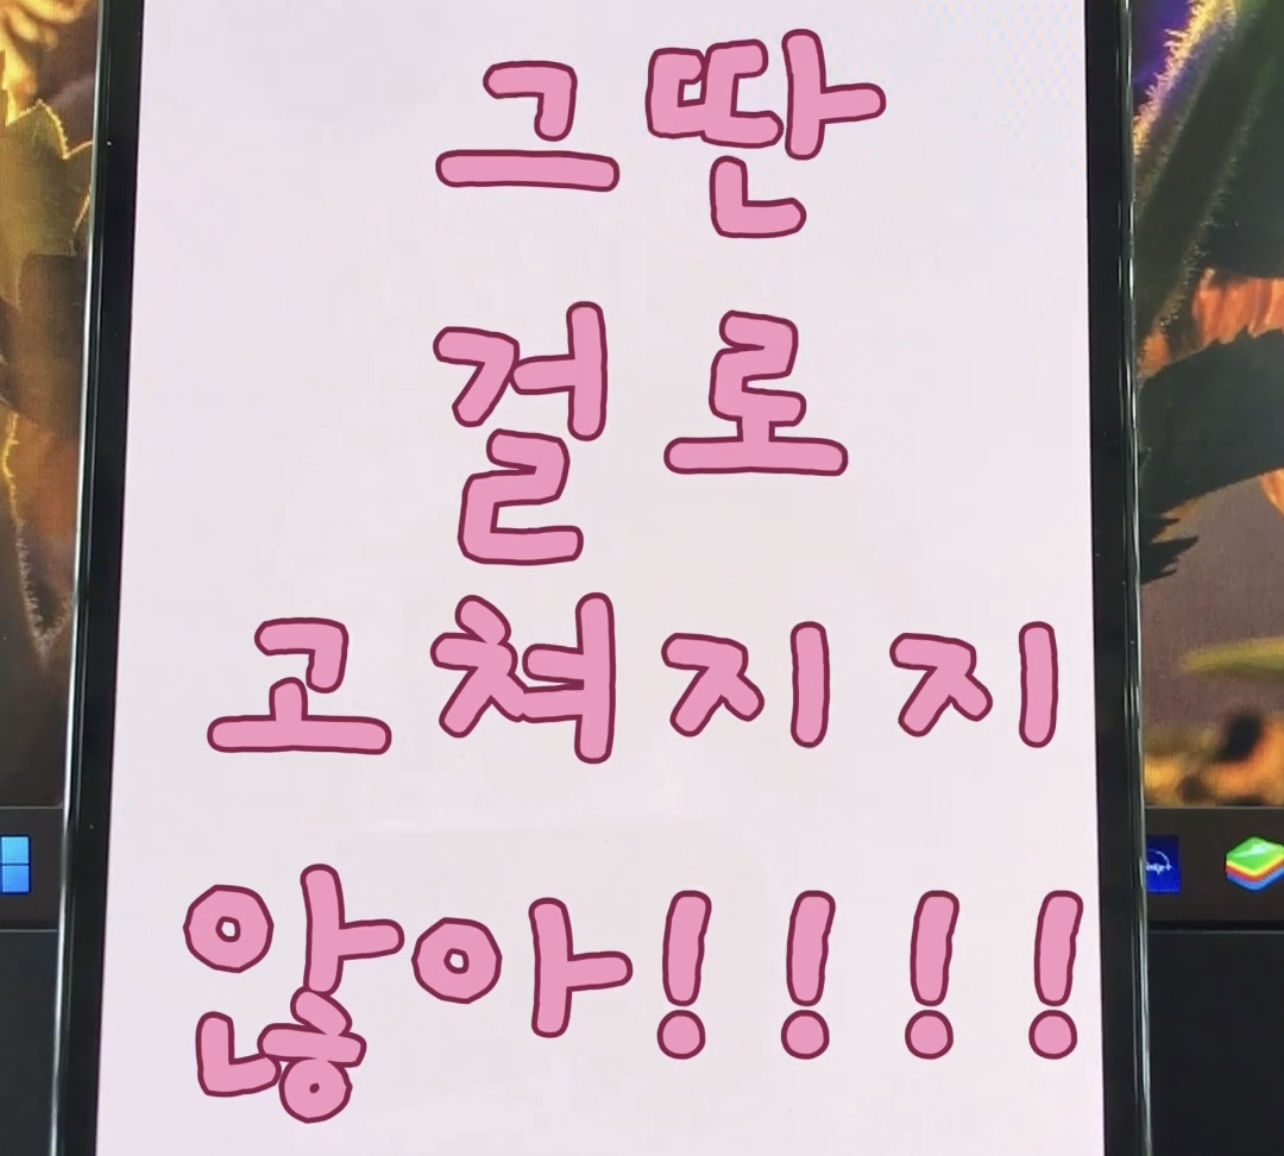 그딴
걸로
고쳐지지
않아!!!!